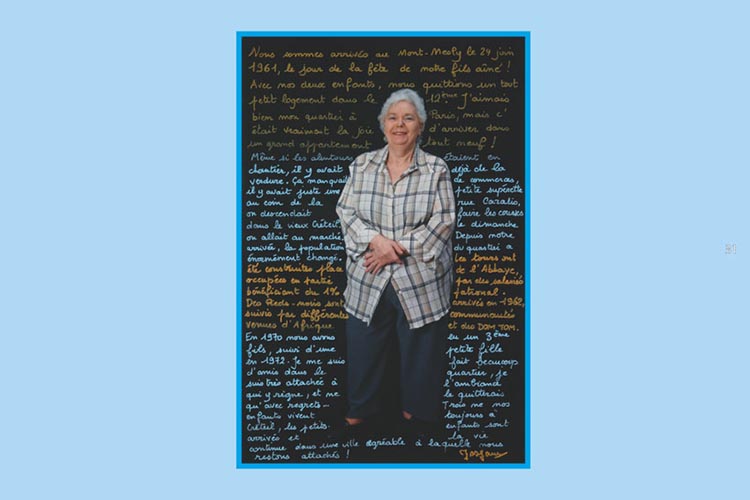 Nous sommes arrivés au Mont-Mesly le 24 juin
1961, le jour de la fête de notre fils aîné !
Avec nos deux enfants, nous quittions un tout
petit logement dans le 12ème. J'aimais
bien mon quartier à Paris, mais c'
était vraiment la joie d'arriver dans
un grand appartement tout neuf !
Même si les alentours étaient en
chantier, il y avait déjà de la
verdure. Ça manquait de commerces,
il y avait juste une petite supérette
au coin de la rue Cazalis,
on descendait faire les courses
dans le vieux Créteil, le dimanche
on allait au marché. Depuis notre
arrivée, la population du quartier a
énormément changé. Les tours ont
été construites place de l'Abbaye,
occupées en partie par des salariés
bénéficiant du 1% patronal.
Des Pieds-noirs sont arrivés en 1962,
suivis par différentes communautés
venues d'Afrique et des DOM.TOM.
En 1970 nous avons eu un 3ème
fils, suivi d'une petite fille
en 1972. Je me suis fait beaucoup
d'amis dans le quartier, je
suis très attachée à l'ambiance
qui y règne, et ne le quitterais
qu'avec regrets - Trois de nos
enfants vivent toujours à
Créteil, les petits-enfants sont
arrivés et la vie
continue dans une ville agréable à laquelle nous
restons attachés !
21